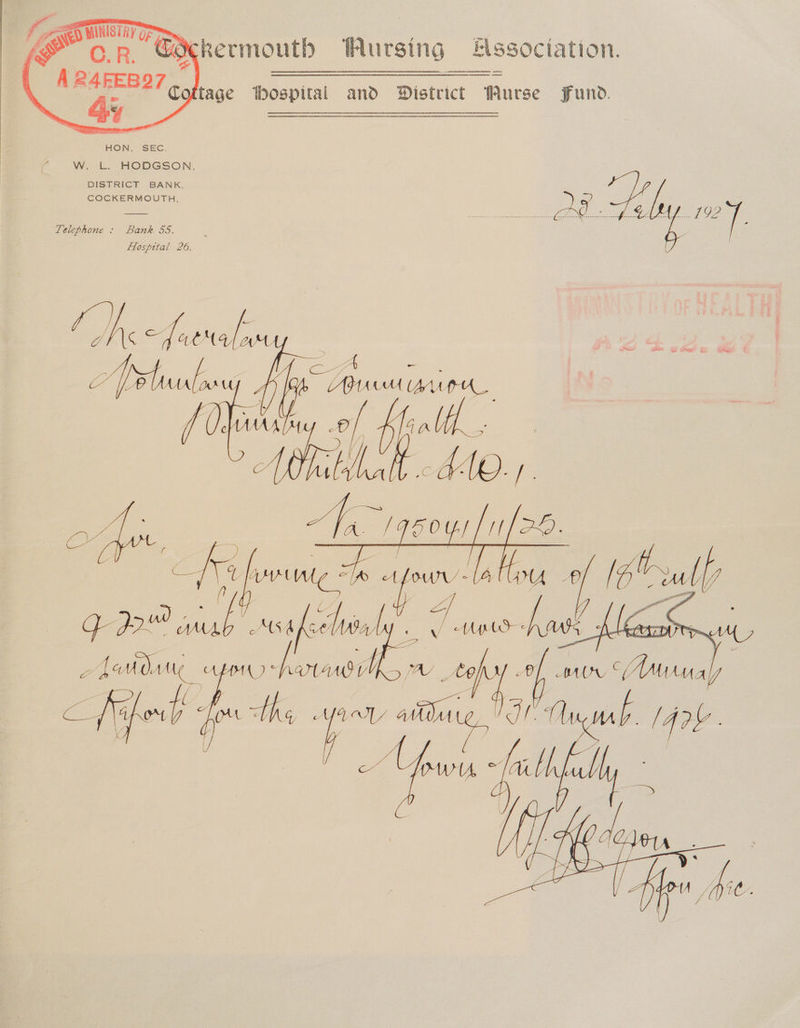 RECEIVED MINISTRY OF
C.R.
A 24FEB27
Cockermouth Nursing Association.
Cottage Hospital and District Nurse Fund.
HON. SEC.
W. L. HODGSON,
DISTRICT BANK,
COCKERMOUTH.
Telephone : Bank 55.
Hospital 26.
23 Feby 1927.
MINISTRY OF HEALTH
The Secretary
Voluntary Hos Commission
Ministry of Health
Whitehall. S.W.1.
Sir,
Referring to your letters of 16th ult
& 22nd inst respectively. I now have pleasure in
sending upon herewith a copy of our Annual
Report for the year ending 31st August. 1926.
Yours faithfully
W L Hodgson
Hon Sec.